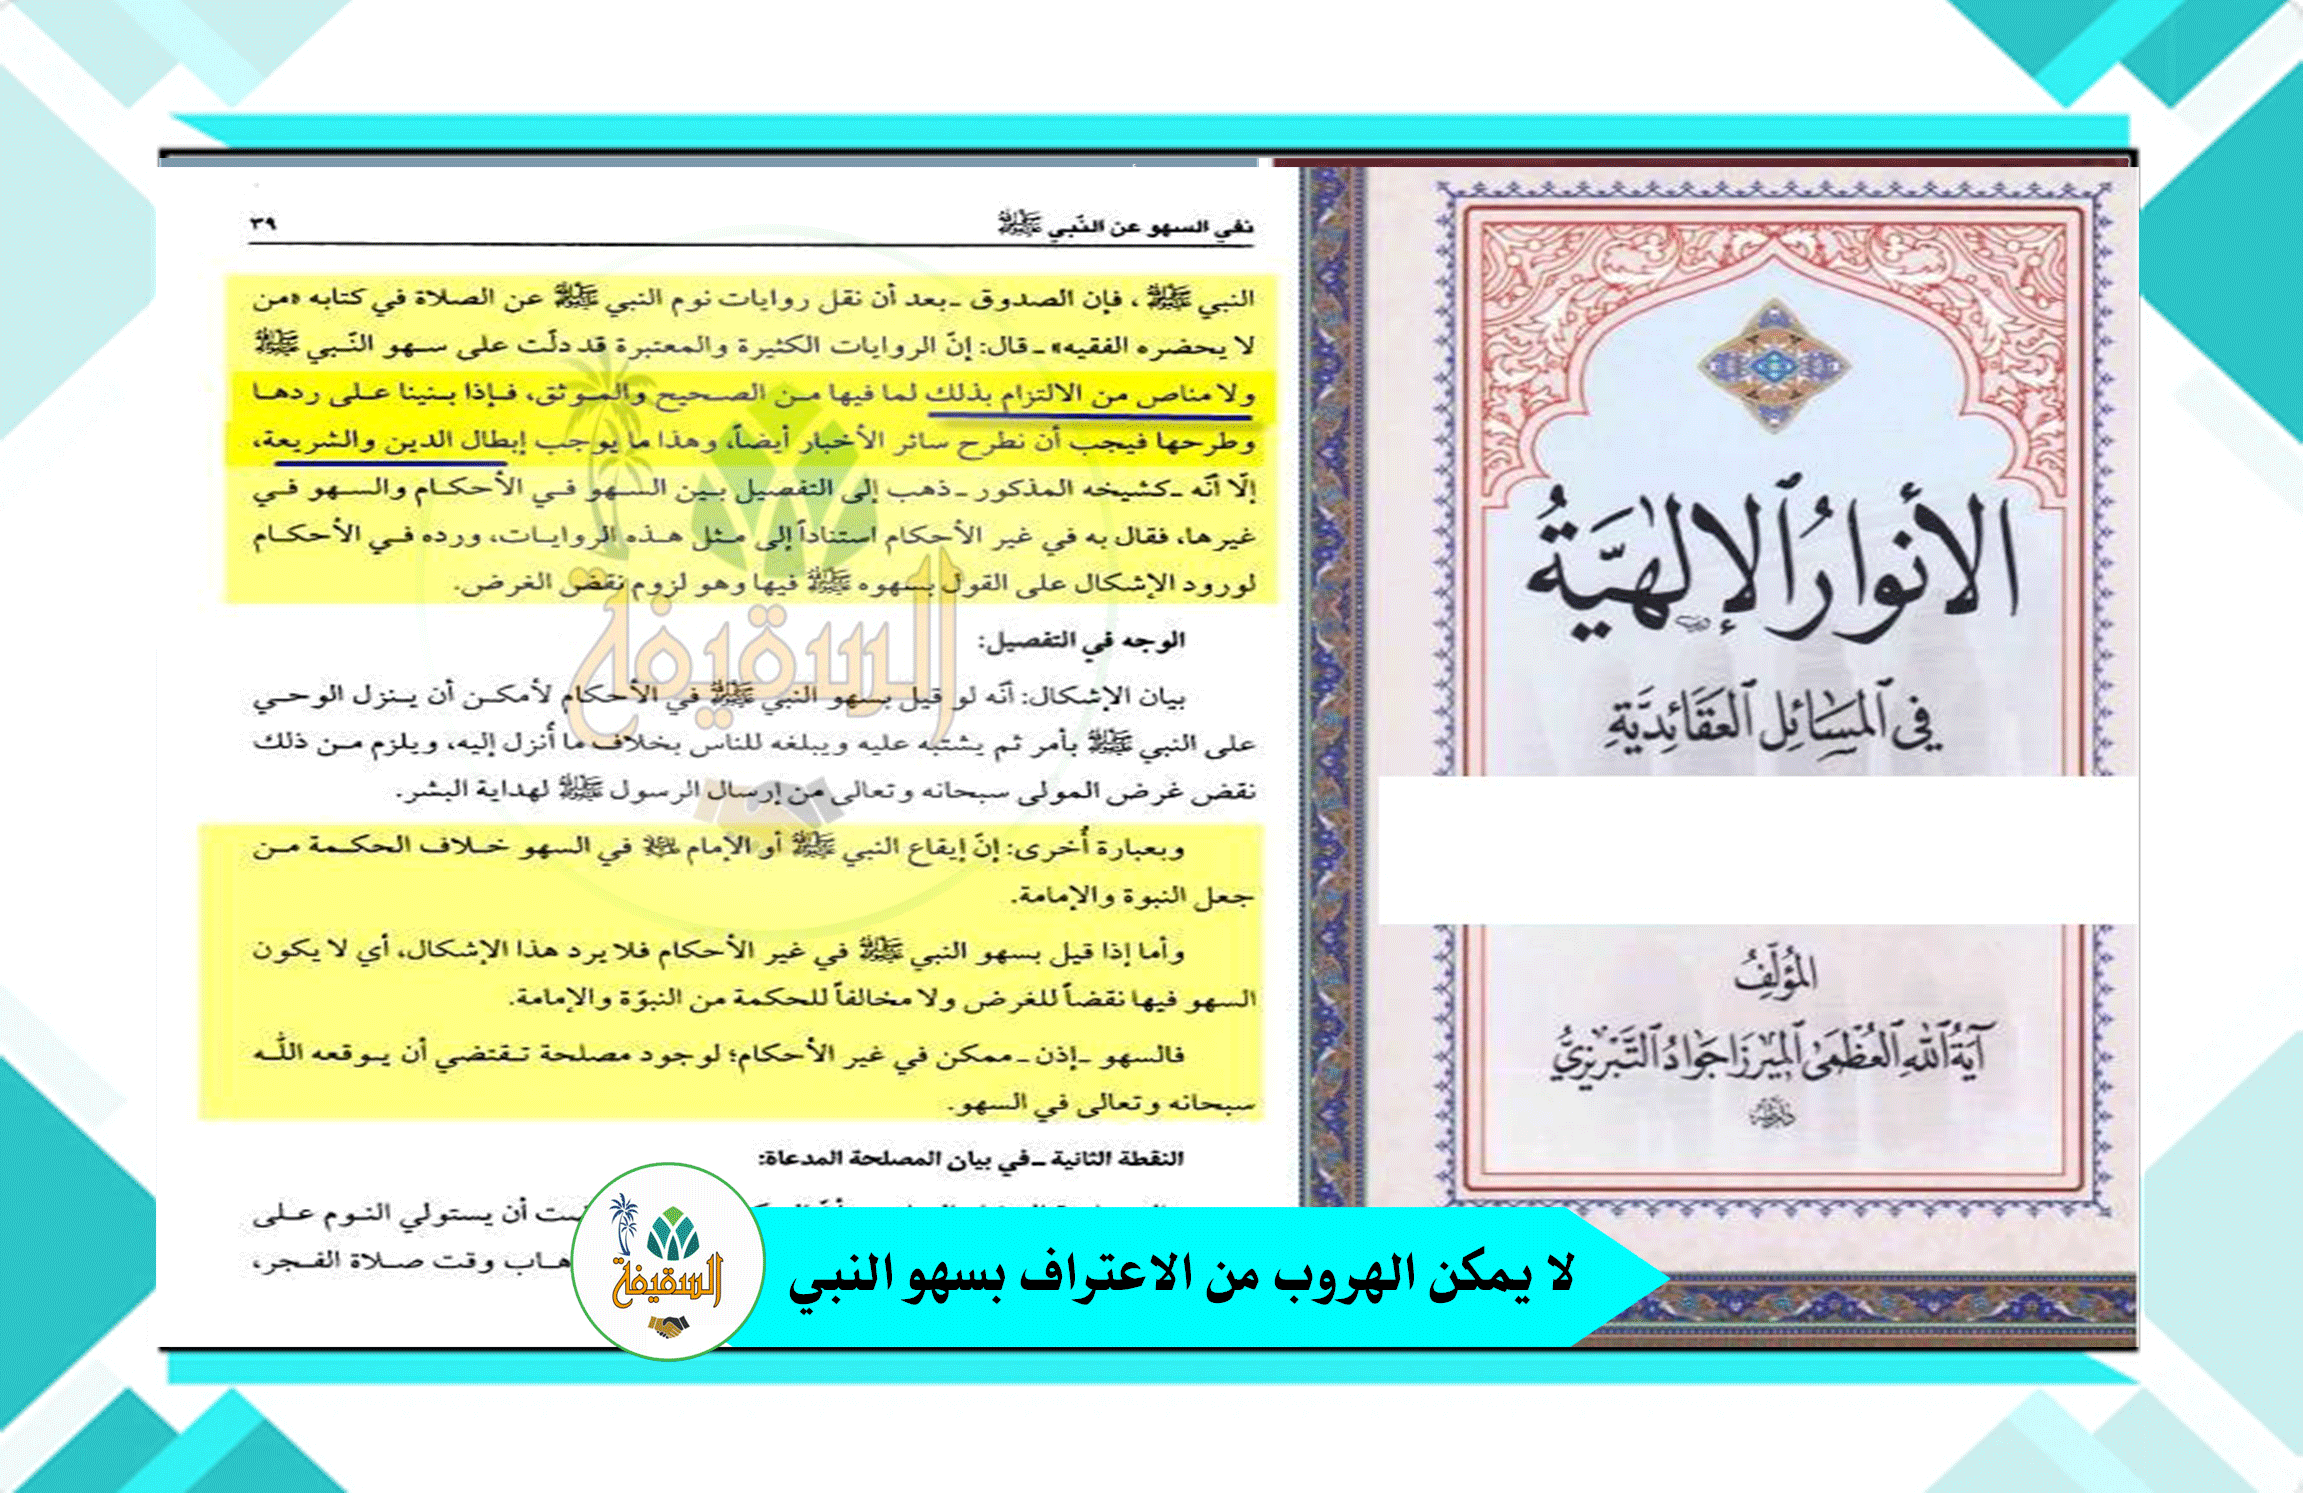 نفي السهو عن النّبي ﷺ ٣٩
النبي ﷺ ، فإن الصدوق ـ بعد أن نقل روايات نوم النبي ﷺ عن الصلاة في كتابه «من
لا يحضره الفقيه» ـ قال: إنّ الروايات الكثيرة والمعتبرة قد دلّت على سهو النّبي ﷺ
ولا مناص من الالتزام بذلك لما فيها من الصحيح والموثق، فإذا بنينا على ردها
وطرحها فيجب أن نطرح سائر الأخبار أيضاً، وهذا ما يوجب إبطال الدين والشريعة،
إلّا أنّه ـ كشيخه المذكور ـ ذهب إلى التفصيل بين السهو في الأحكام والسهو في
غيرها، فقال به في غير الأحكام استناداً إلى مثل هذه الروايات، ورده في الأحكام
لورود الإشكال على القول بسهوه ﷺ فيها وهو لزوم نقض الغرض.
الوجه في التفصيل:
بيان الإشكال: أنّه لو قيل بسهو النبي ﷺ في الأحكام لأمكن أن ينزل الوحي
على النبي ﷺ بأمر ثم يشتبه عليه ويبلغه للناس بخلاف ما أنزل إليه، ويلزم من ذلك
نقض غرض المولى سبحانه وتعالى من إرسال الرسول ﷺ لهداية البشر.
وبعبارة أُخرى: إنّ إيقاع النبي ﷺ أو الإمام في السهو خلاف الحكمة من
جعل النبوة والإمامة.
وأما إذا قيل بسهو النبي ﷺ في غير الأحكام فلا يرد هذا الإشكال، أي لا يكون
السهو فيها نقضاً للغرض ولا مخالفاً للحكمة من النبوّة والإمامة.
فالسهو ـ إذن ـ ممكن في غير الأحكام؛ لوجود مصلحة تقتضي أن يوقعه اللّه
سبحانه وتعالى في السهو.
النقطة الثانية ـ في بيان المصلحة المدعاة:
أن يستولي النوم على
وقت صلاة الفجر،
السقيفة
الأنوار الإلهيّة
في المسائل العقائديّة
المؤلّف
آية اللّه العظمى الميرزا جواد التّبريزيّ
السقيفة
لا يمكن الهروب من الاعتراف بسهو النبي